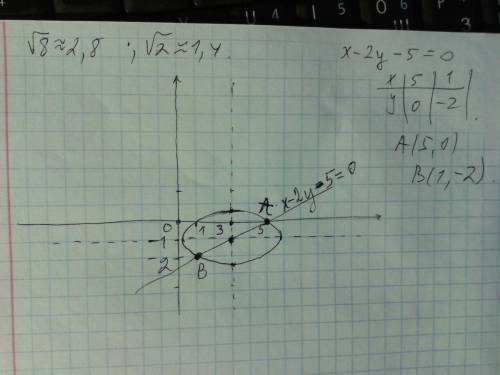 √8≈2,8 ; √2≈1,4.
x-2y-5=0
x | 5 | 1
y | 0 | -2
A(5,0)
B(1,-2).
x-2y-5=0
A
0 1 3 5
1
2
B